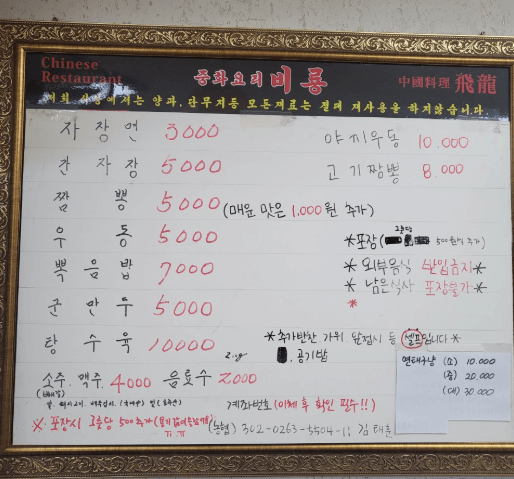 Chinese Restaurant 중화요리 비룡 中國料理 飛龍
저희 식당에서는 양파, 단무지등 모든재료는 절대 재사용을 하지않습니다.
자장면 3000
간자장 5000
짬뽕 5000 (매운 맛은 1,000원 추가)
우동 5000
볶음밥 7000
군만두 5000
탕수육 10000
소주.맥주. 4000 음료수 2000
야끼우동 10.000
고기짬뽕 8.000
*포장 (500원씩 추가)
1그릇당
*외부음식 반입금지*
*남은식사 포장불가*
*
*추가반찬 가위 앞접시 등 셀프입니다*
공기밥
연태구냥 (소) 10.000
(중) 20,000
(대) 30.000
계좌번호 (이체 후 확인 필수!!)
※.포장시 1그릇당 500추가
ㅠㅠ
(농협) 302-0263-5504-11 김태훈